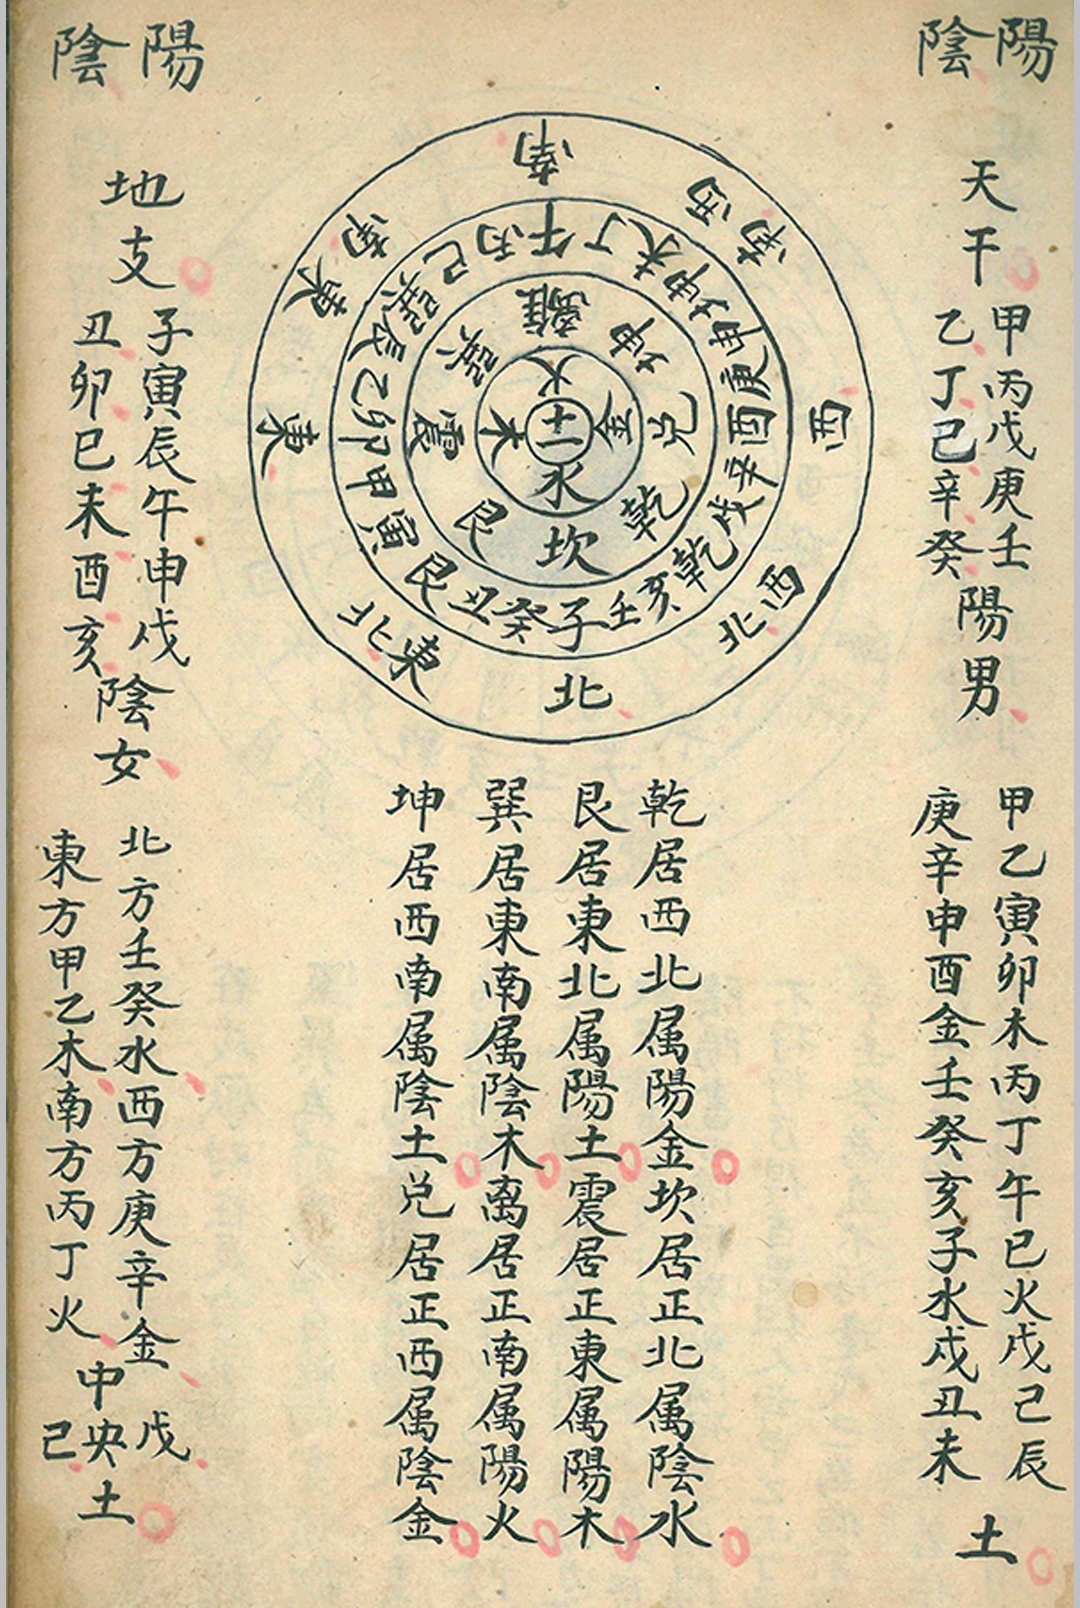 陽
陰
天干
甲丙戊庚壬
乙丁己辛癸
陽男
甲乙寅卯木丙丁午巳火戊己辰
庚辛申酉金壬癸亥子水戌丑未
土
南
西南
西
西北
北
東北
東
東南
午丁未坤申庚酉辛戌乾亥壬子癸丑艮寅甲卯乙辰巽巳丙
離坤兌乾坎艮震巽
火金水木
土
乾居西北属陽金坎居正北属陰水
艮居東北属陽土震居正東属陽木
巽居東南属陰木离居正南属陽火
坤居西南属陰土兑居正西属陰金
陽
陰
地支
子寅辰午申戌
丑卯巳未酉亥
陰女
北方壬癸水西方庚辛金
東方甲乙木南方丙丁火
中央
戊
己
土